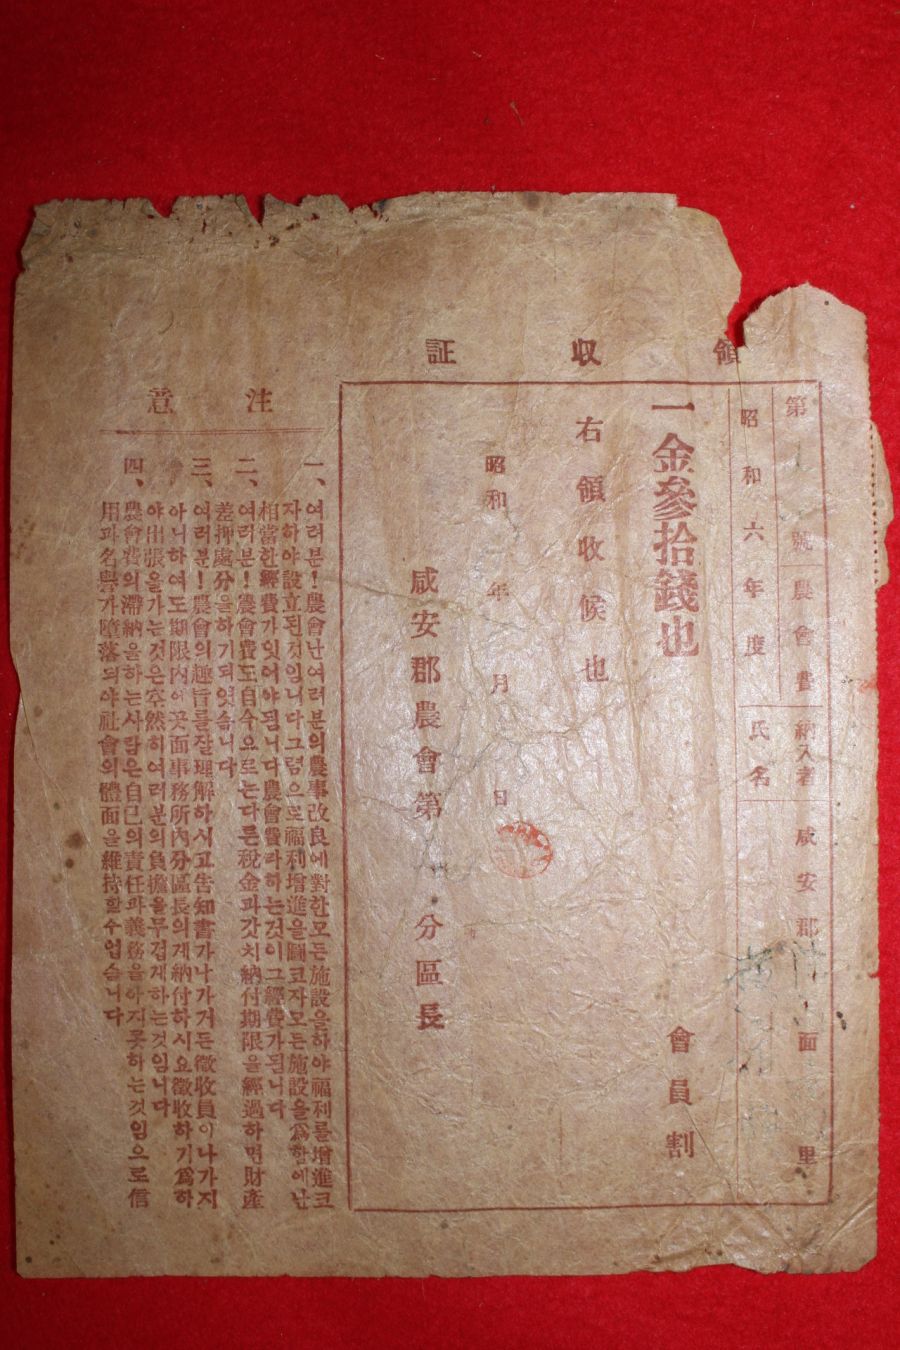 領收証
第 號 農會費 納入者 咸安郡 面 里
昭和六年度 氏名
一金參拾錢也 會員割
右領收候也
昭和 年 月 日
咸安郡農會第 分區長
注意
一、여러분!農會난여러분의農事改良에對한모든施設을하야福利를增進코
자하야設立된것임니다그럼으로福利增進을圖코자모든施設을爲함에난
相當한經費가잇어야됩니다農會費라하는것이그經費가됩니다
二、여러분!農會費도自今으로는다른稅金과갓치納付期限을經過하면財産
差押處分을하기되엿슴니다
三、여러분!農會의趣旨를잘理解하시고告知書가나가거든徵收員이나가지
아니하여도期限內에곳面事務所內分區長의게納付하시요徵收하기爲하
야出張을가는것은空然히여러분의負擔을무겁게하는것입니다
四、農會費의滯納을하는사람은自己의責任과義務을아지못하는것임으로信
用과名譽가墮落되야社會의體面을維持할수업슴니다